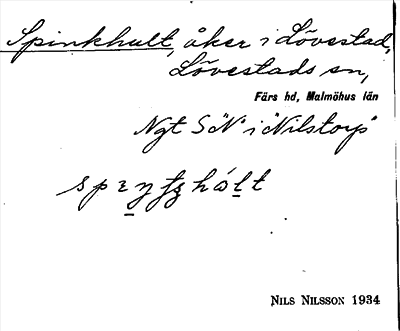 Spinkhult, åker i Lövestad,
Lövestads sn,
Färs hd, Malmöhus län
Ngt S "N" i "Nilstorp"
NILS NILSSON 1934